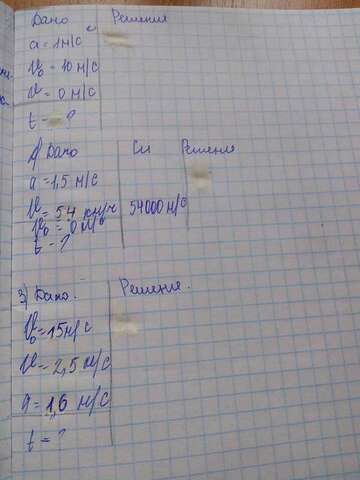 Дано Решение
a = 1 м/с²
V₀ = 10 м/с
V = 0 м/с
t = ?
Дано Си Решение
a = 1,5 м/с
V = 54 км/ч 54000 м/с
V₀ = 0 м/с
t - ?
3) Дано. Решение.
V₀ = 15 м/с
V = 2,5 м/с
a = 1,6 м/с
t = ?